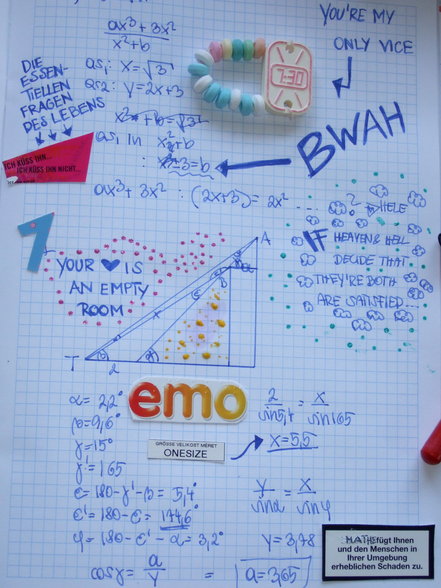 YOU'RE MY
ONLY VICE
ax³ + 3x²
x² + b
DIE
ESSEN-
TIELLEN
FRAGEN
DES LEBENS
as₁: x = √3
as₂: y = 2x + 3
7:30
BWAH
as₁ in x² + b
ICH KÜSS IHN...
ICH KÜSS IHN NICHT...
: x² + 3 = b
ax³ + 3x² : (2x+3) = 2x²
IF
HEAVEN & HELL
DECIDE THAT
THEY'RE BOTH
ARE SATISFIED
7
YOUR ♥ IS
AN EMPTY
ROOM
A
x
T
2
emo
GRÖSSE VELIKOST MÉRET
ONESIZE
α = 2,2°
β = 9,6°
γ = 15°
γ' = 165
ε = 180 - γ' - β = 5,4°
ε' = 180 - ε = 174,6°
φ = 180 - ε' - α = 3,2°
cos γ = a/y = a = 3,65
2/sin 5,4 = x/sin 165
x = 5,5
y/sin α = x/sin φ
y = 3,78
MATHE fügt Ihnen
und den Menschen in
Ihrer Umgebung
erheblichen Schaden zu.